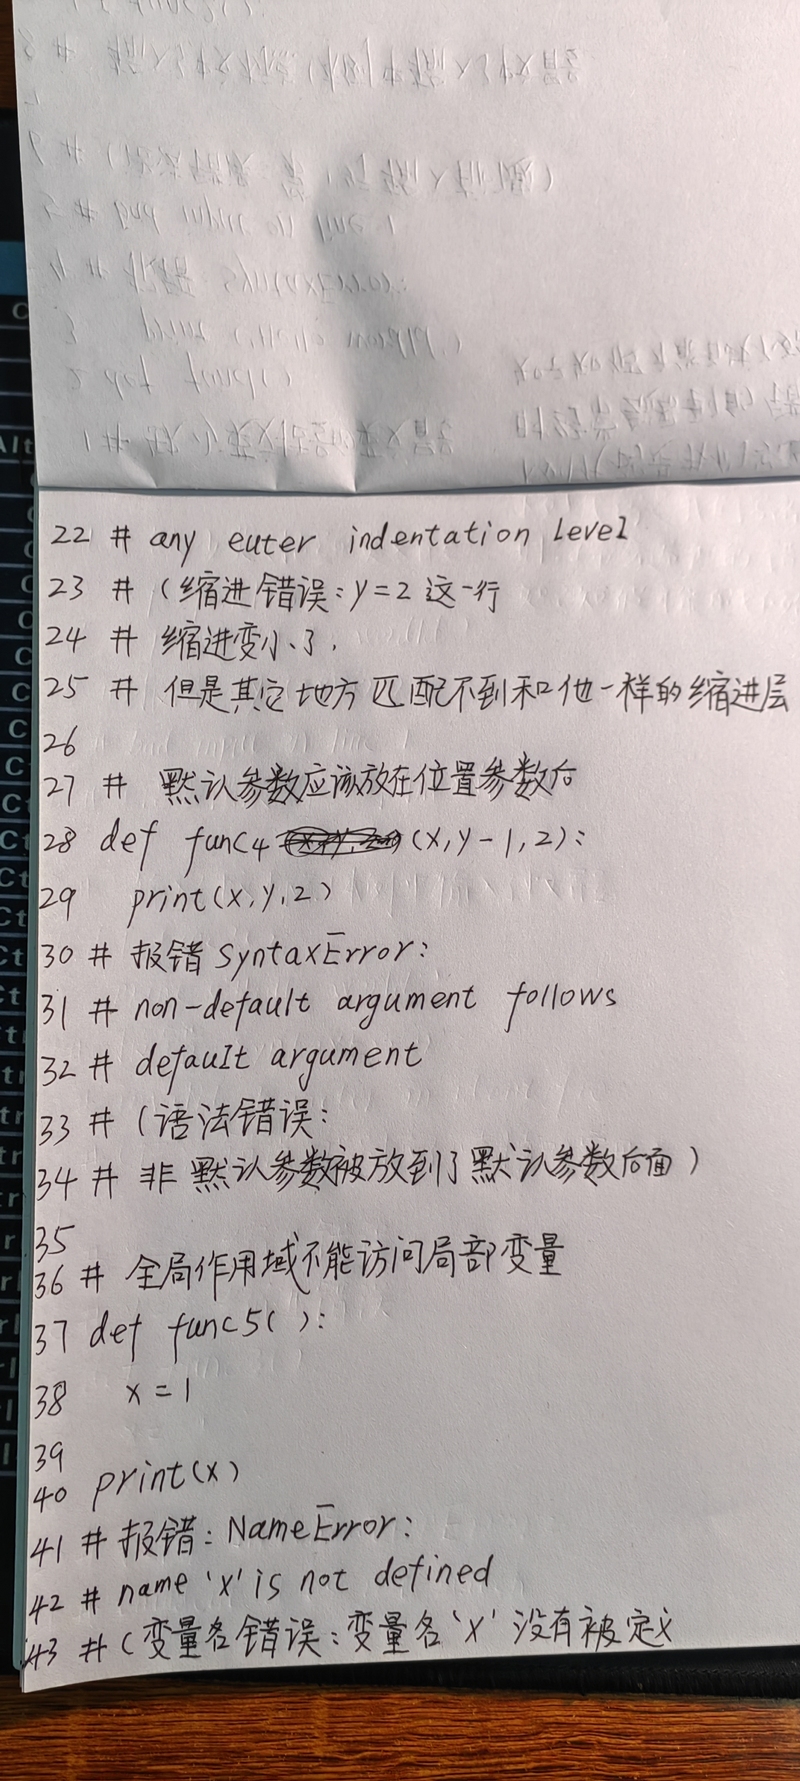 22 # any euter indentation level
23 # (缩进错误:y=2 这一行
24 # 缩进变小了,
25 # 但是其它地方匹配不到和他一样的缩进层
26
27 # 默认参数应该放在位置参数后
28 def func4 (x,y-1,2):
29 print(x,y,2)
30 # 报错 SyntaxError:
31 # non-default argument follows
32 # default argument
33 # (语法错误:
34 # 非默认参数被放到了默认参数后面)
35
36 # 全局作用域不能访问局部变量
37 def func5():
38 x=1
39
40 print(x)
41 # 报错:NameError:
42 # name 'x' is not defined
43 # (变量名错误:变量名'x'没有被定义